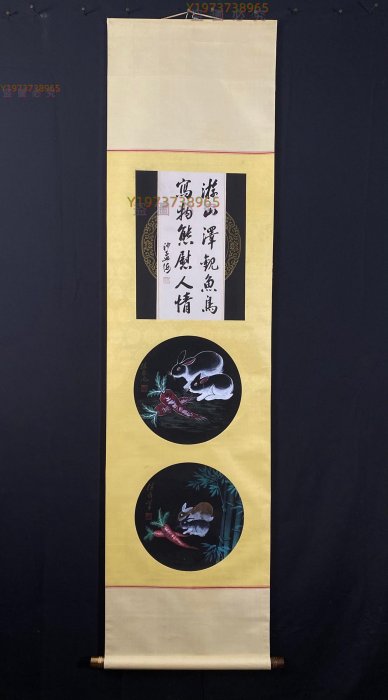 Y1973738965
盜圖必究
Y1973738965
盜圖必究
Y1973738965
游山澤觀魚鳥
寫物態慰人情
沙孟海